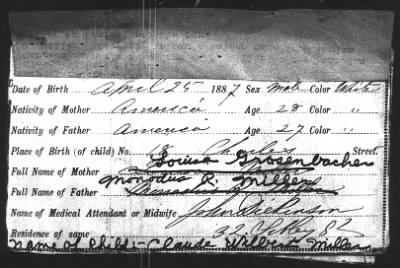 Date of Birth April 25 1887 Sex Male Color White
Nativity of Mother America Age 28 Color "
Nativity of Father America Age 27 Color "
Place of Birth (of child) No. 18 Charles Street.
Louisa Grosenbacher
Full Name of Mother
Monodus R. Miller
Full Name of Father
Name of Medical Attendant or Midwife John Dickinson
Residence of same 92 St
Name of Child:- Claude Wilbert Miller